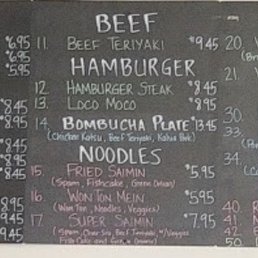 BEEF
$6.95 11. BEEF TERIYAKI $9.45 20.
$6.95 HAMBURGER
$5.95
12. HAMBURGER STEAK $8.45
$8.45 13. LOCO MOCO $8.95
$8.45 14. BOMBUCHA PLATE $13.45 30.
(Chicken Katsu, Beef Teriyaki, Kalua Pork) 33.
NOODLES 34.
$8.45 15. FRIED SAIMIN $5.95
(Spam, Fishcake, Green Onion)
$8.95 16. WON TON MEIN $5.95 40.
$8.45 (Won Ton, Noodles, Veggies) 41
17. SUPER SAIMIN $7.95 42
$8.95 (Spam, Char Siu, Beef Teriyaki, w/Veggies 50
Fish Cake and Egg, Onion)